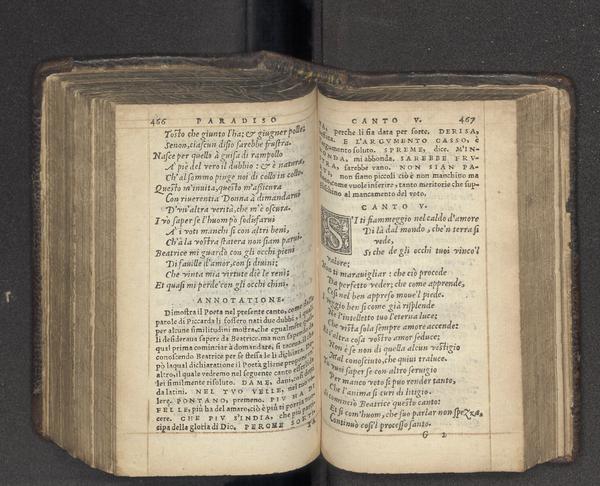 466 PARADISO
Tosto che giunto l'ha; & giugner pollo;
Senon, ciascun disio sarebbe frustra.
Nasce per quello à guisa di rampollo
A piè del vero il dubbio: & è natura,
Ch'al sommo pinge noi di collo in collo.
Questo m'invita, questo m'assicura
Con riuerentia Donna à dimandarui
D'un'altra verità, che m'è oscura.
I vo saper se l'huom può sodisfarui
A i voti manchi si con altri beni,
Ch'à la vostra statera non siam parui.
Beatrice mi guardò con gli occhi pieni
Di fauille d'amor, con si diuini;
Che vinta mia virtute diè le reni;
Et quasi mi perde' con gli occhi chini.
ANNOTATIONE.
Dimostra il Poeta nel presente canto, come dalle
parole di Piccarda li fossero nati due dubbi, i quali
per alcune similitudini mostra, che egualmente
li desideraua sapere da Beatrice. ma non sapendo
qual prima cominciar à domandare, si taceua. il che
conoscendo Beatrice per se stessa le li dichiara. Do
pò laqual dichiaratione il Poeta gliene propone
altro, il quale vedremo nel seguente canto essere
lei similmente risoluto. DAME, dani,
da latini. NEL TVO VELLE, nel tuo vo
lere. PONTANO, premeno. PIV HA DI
FELLE, più ha del amaro, ciò è più ti potria
cere. CHE PIV S'INDIA, che più parte
cipa della gloria di Dio. PERCHE SORTI
CANTO V. 467
TA, perche li sia data per sorte. DERISA,
E L'ARGVMENTO CASSO, è
argumento soluto. SPREME, dice. M'IN-
ONDA, mi abbonda. SAREBBE FRV-
sarebbe vano. NON SIAN PA-
non siano piccoli ciò è non manchino ma
come vuole inferire, tanto meritorie che sup-
plischino al mancamento del voto.
CANTO V.
S'I ti fiammeggio nel caldo d'amore
Di là dal mondo, che'n terra si
vede,
Si che de gli occhi tuoi vinco'l
valore;
Non ti marauigliar: che ciò procede
Da perfetto veder; che come apprende,
Cosi nel ben appreso moue'l piede.
I veggio ben si come già risplende
Ne l'intelletto tuo l'eterna luce;
Che vista sola sempre amore accende:
Et s'altra cosa vostro amor seduce;
Non è se non di quella alcun vestigio
Mal conosciuto, che quiui traluce.
Tu vuoi saper se con altro seruigio
Per manco voto si può render tanto,
Che l'anima si curi di litigio.
Si cominciò Beatrice questo canto:
Et si com'huom, che suo parlar non spezza,
Continuò cosi'l processo santo.
G 2